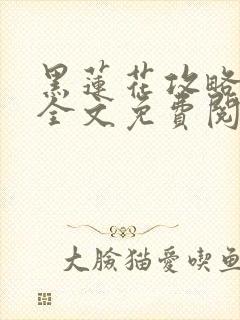 黑莲花攻略
全文免費閱
大臉猫愛喫鱼